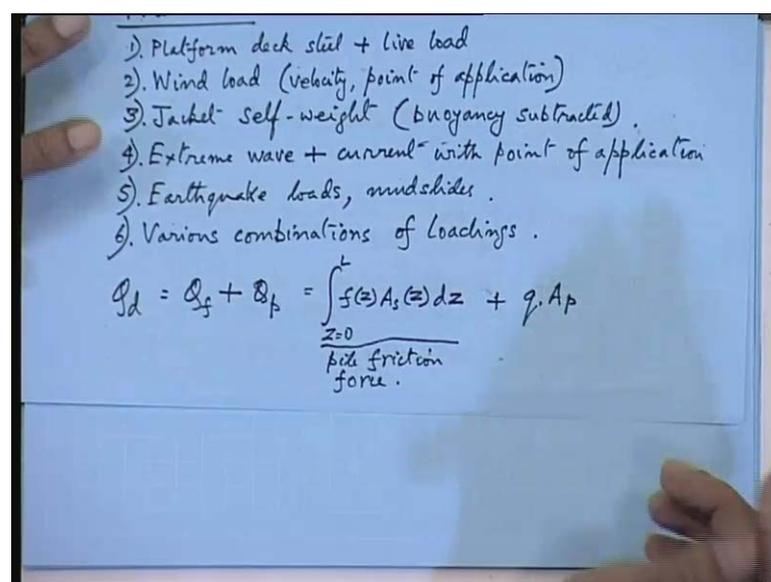 1). Platform deck steel + live load
2). Wind load (velocity, point of application)
3). Jacket self-weight (buoyancy subtracted).
4). Extreme wave + current with point of application
5). Earthquake loads, mudslides.
6). Various combinations of Loadings.
Qd = Qf + Qp = ∫_{z=0}^{L} f(z) As(z) dz + q. Ap
pile friction
force.